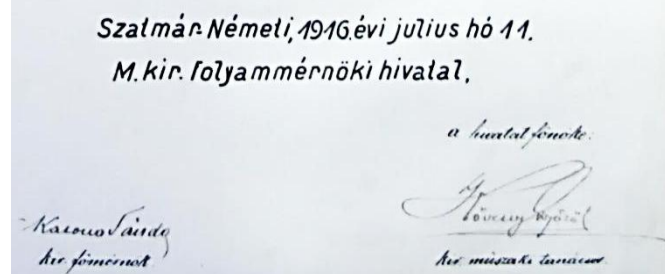 Szatmár-Németi, 1916. évi julius hó 11.
M. kir. folyammérnöki hivatal,
a hivatal főnöke:
kir. főmérnök
kir. műszaki tanácsos.